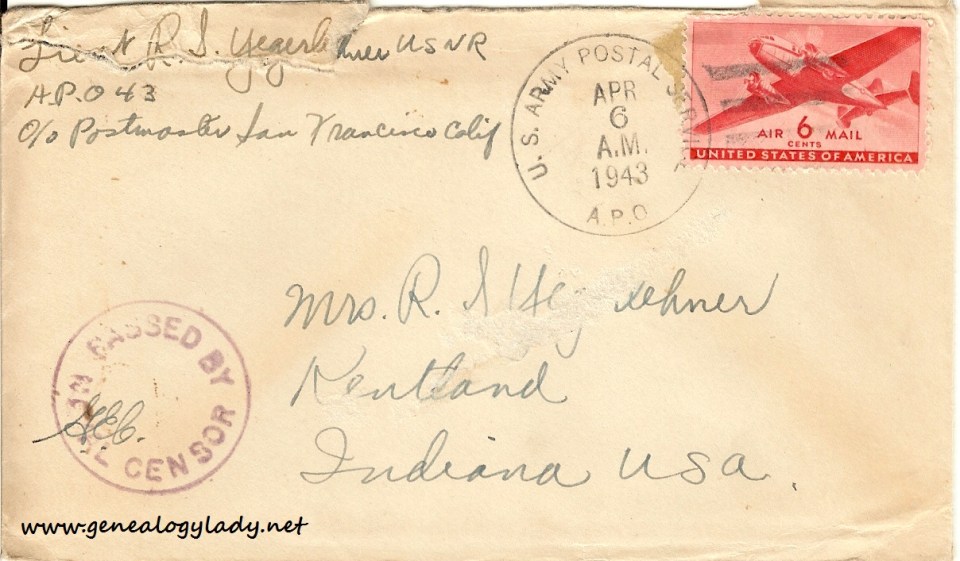 Lieut R. S. Yegerlehner USNR
A.P.O 43
c/o Postmaster San Francisco Calif
U.S. ARMY POSTAL SERVICE
APR
6
A.M.
1943
A.P.O.
AIR 6 MAIL
CENTS
UNITED STATES OF AMERICA
Mrs. R. S. Yegerlehner
Kentland
Indiana USA.
PASSED BY
NAVAL CENSOR
www.genealogylady.net